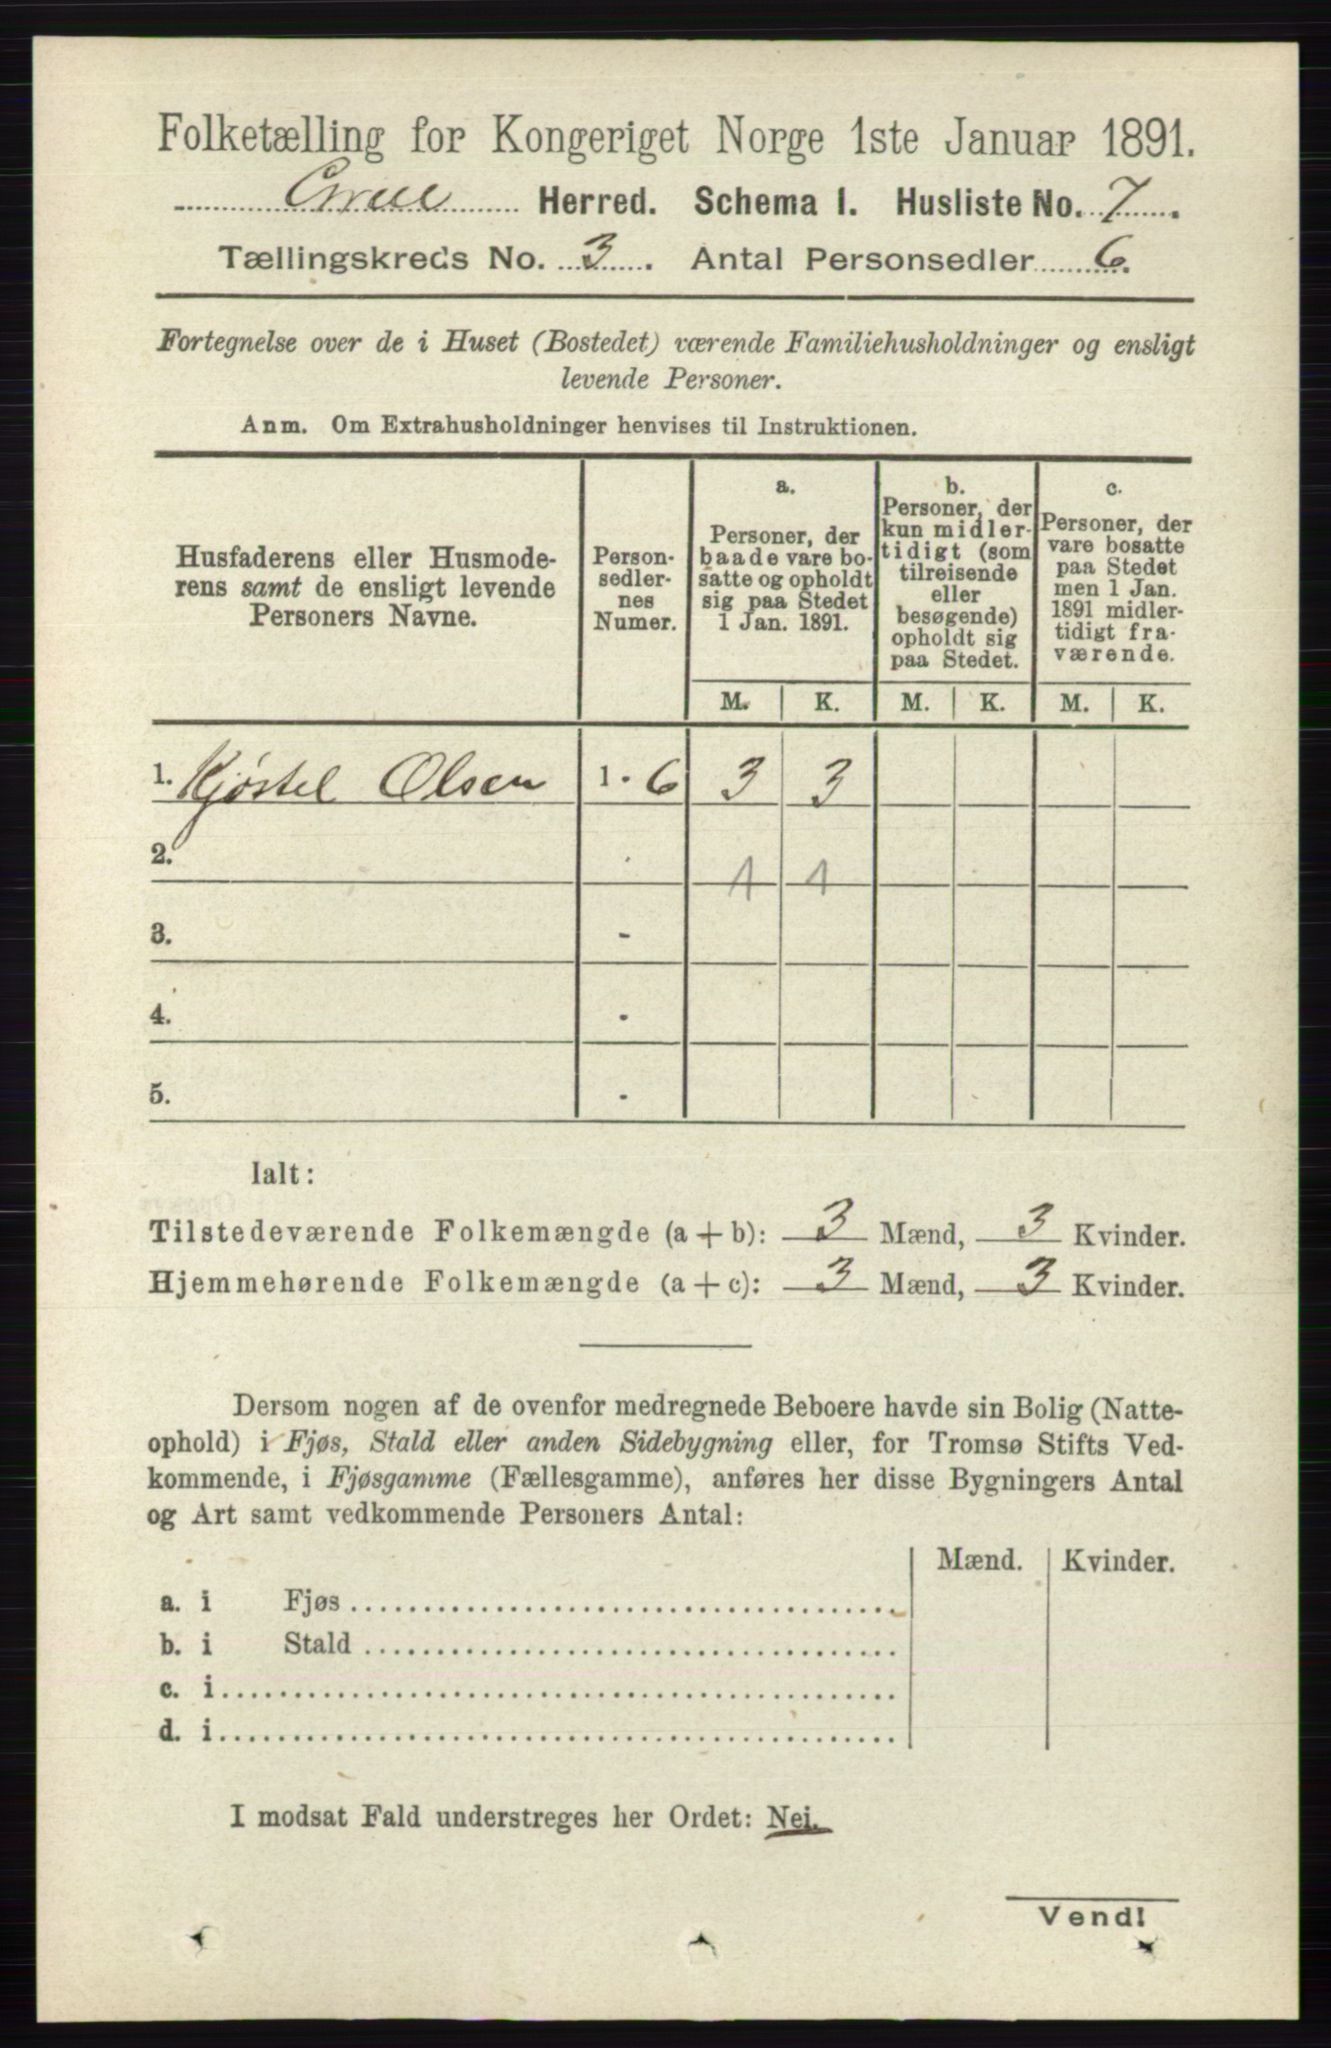 Folketælling for Kongeriget Norge 1ste Januar 1891.
Herred. Schema I. Husliste No. 7.
Tællingskreds No. 3. Antal Personsedler 6.
Fortegnelse over de i Huset (Bostedet) værende Familiehusholdninger og ensligt
levende Personer.
Anm. Om Extrahusholdninger henvises til Instruktionen.
Husfaderens eller Husmode-
rens samt de ensligt levende
Personers Navne.
Person-
sedler-
nes
Numer.
a.
Personer, der
baade vare bo-
satte og opholdt
sig paa Stedet
1 Jan. 1891.
b.
Personer, der
kun midler-
tidigt (som
tilreisende
eller
besøgende)
opholdt sig
paa Stedet.
c.
Personer, der
vare bosatte
paa Stedet
men 1 Jan.
1891 midler-
tidigt fra-
værende.
M. K. M. K. M. K.
1. Kjøstel Olsen 1 - 6 3 3
2. - 1 1
3. -
4. -
5. -
Ialt:
Tilstedeværende Folkemængde (a + b): 3 Mænd, 3 Kvinder.
Hjemmehørende Folkemængde (a + c): 3 Mænd, 3 Kvinder.
Dersom nogen af de ovenfor medregnede Beboere havde sin Bolig (Natte-
ophold) i Fjøs, Stald eller anden Sidebygning eller, for Tromsø Stifts Ved-
kommende, i Fjøsgamme (Fællesgamme), anføres her disse Bygningers Antal
og Art samt vedkommende Personers Antal:
Mænd. Kvinder.
a. i Fjøs
b. i Stald
c. i
d. i
I modsat Fald understreges her Ordet: Nei.
Vend!